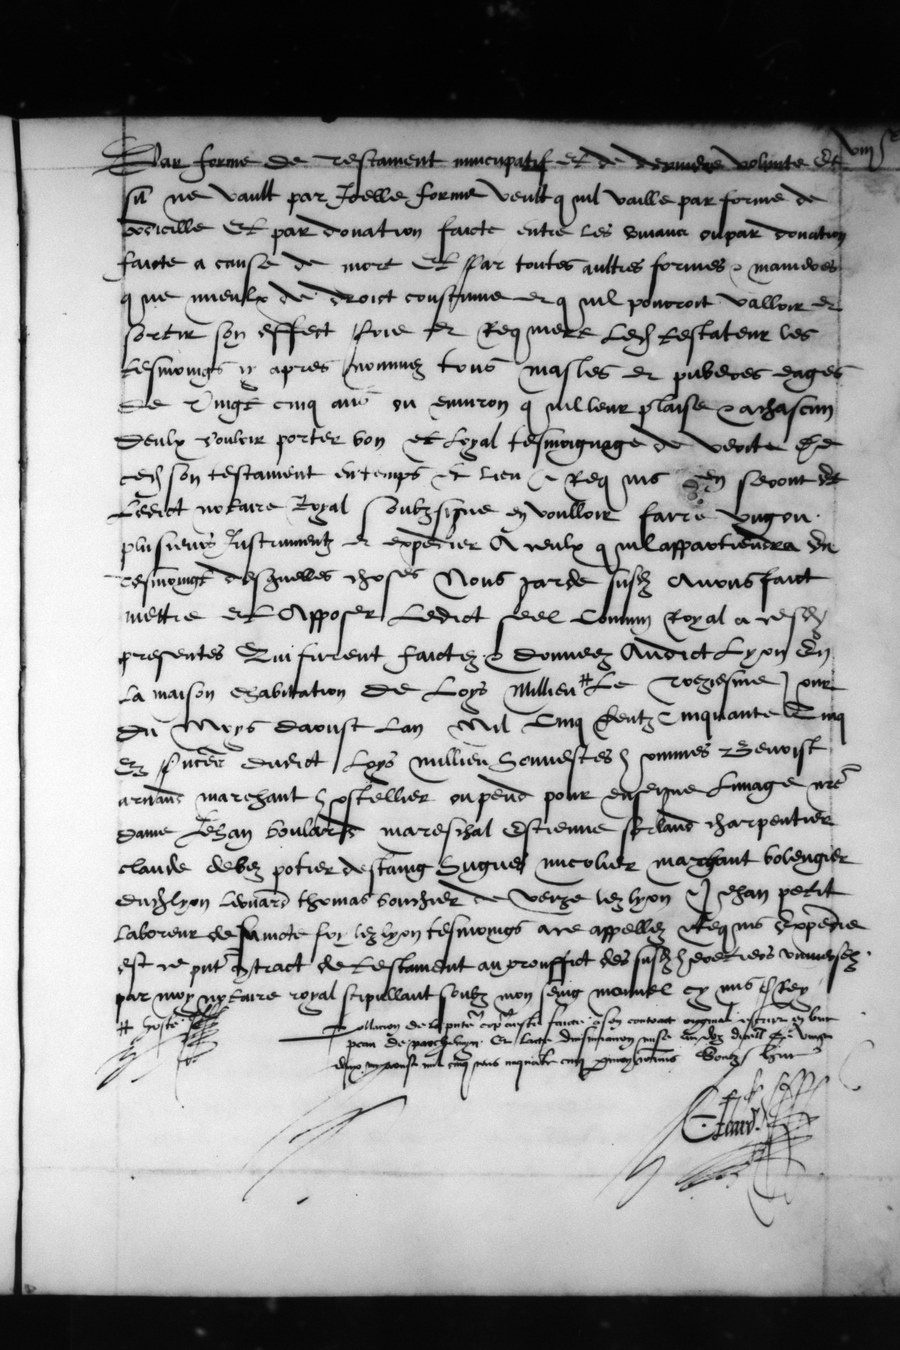 Par forme de testament nuncupatif Et de derniere volunte Et
si ne vault par Icelle forme veult quil vaille par forme de
codicille Et par donation faicte entre les vivans ou par donation
faicte a cause de mort Et par toutes aultres formes manieres
que mieulx de droict coustume et quil pourroit valloir et
sortir son effect prie et Requiere Led testateur les
tesmoings cy apres nommez tous masles et puberes eages
de vingt cinq ans ou environ quil leur plaise a chascun
deulx voloir porter bon et loyal tesmoignage de verite de
ced son testament en temps et lieu Requis en seront Et
Ledict notaire Royal soubzsigne en voulloir faire ung ou
plusieurs Instrumentz et expedier A ceulx quil appartiendra En
tesmoing desquelles choses Nous garde susd Avons faict
mettre et Apposer Ledict seel Commun Royal a cesd
presentes Qui furent faictez donneez Audict Lyon En
La maison habitation de Loys Millieu # Le treziesme Jour
du Moys daoust Lan Mil Cinq Centz Cinquante Cinq
Ez presences dudict Loys Millieu honnestes hommes Benoist
marchant hostellier ou pend pour enseigne Limage nre
dame Jehan boulard mareschal Estienne charpentier
claude potier destaing hugues nicolier marchant bolengier
dud lyon Leonard thomas bouchier de veize lez lyon Jehan petit
Laboreur de saincte foy lez lyon tesmoings a ce appellez Requis Expedie
est ce put extract de testament au prouffict des susd heretiers universelz
par moy notaire royal stipullant soubz mon seing manuel cy mis Rey
# hoste
Collation de la pnte coppie a este faicte a son contract orginal escript en une
peau de parchemyn Et Lacte dinsinuation
mil cinq cens cinquante cinq